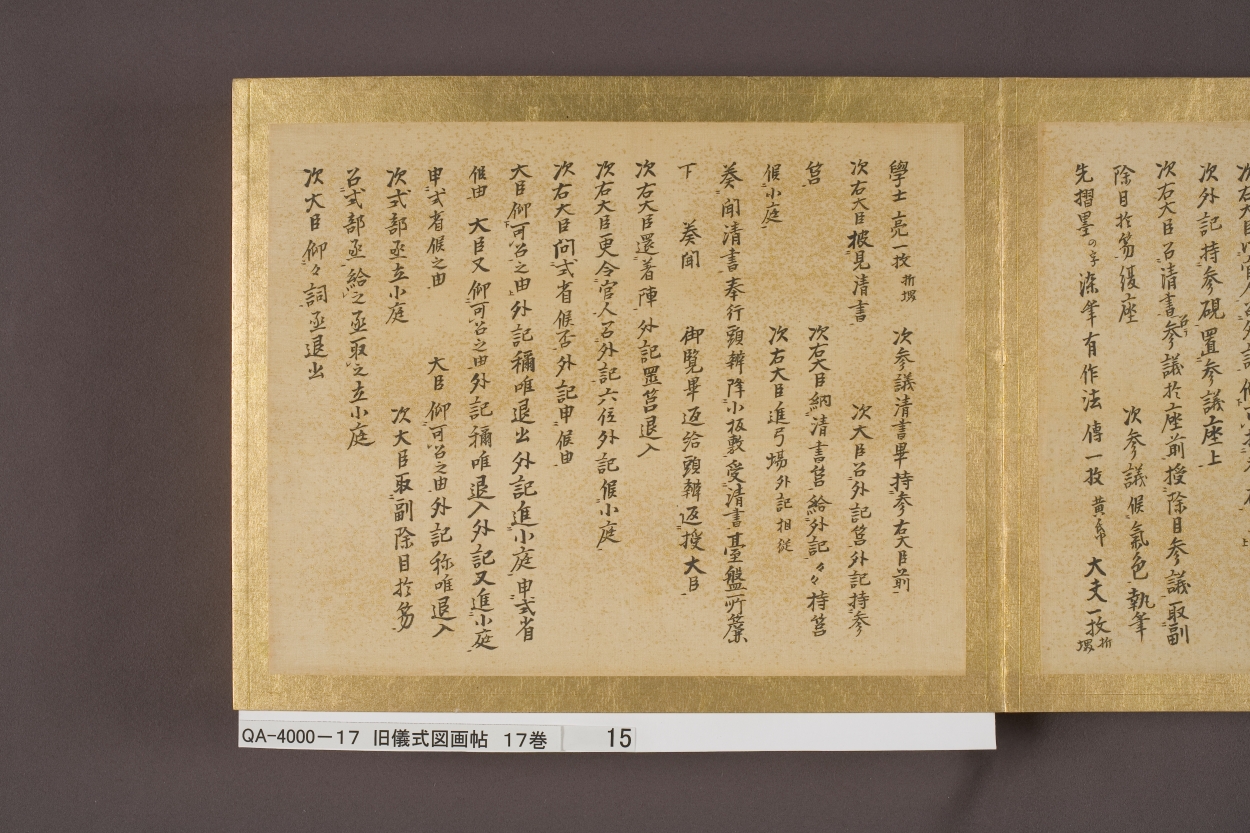 次外記持参硯置参議座上
次右大臣召清書参議於座前授除目参議取副
除目於笏復座　次参議候氣色執筆
先摺墨の字染筆有作法 傳一枚 黄帋 大夫一枚 折堺
學士 亮一枚 折堺　次参議清書畢持参右大臣前
次右大臣披見清書　次大臣召外記筥外記持参
筥　次右大臣納清書筥給外記々々持筥
候小庭　次右大臣進弓場外記相従
奏聞清書奉行頭辨降小板敷受清書臺盤所簾
下　奏聞　御覧畢返給頭辨返授大臣
次右大臣還著陣　外記置筥退入
次右大臣更令官人召外記六位外記候小庭
次右大臣問式省候否外記申候由
大臣仰可召之由外記稱唯退出外記進小庭申式省
候由　大臣又仰可召之由外記稱唯退入外記又進小庭
申式省候之由　大臣仰可召之由外記称唯退入
次式部丞立小庭　次大臣取副除目於笏
召式部丞給之丞取之立小庭
次大臣仰々詞丞退出
QA-4000-17 旧儀式図画帖 17巻 15